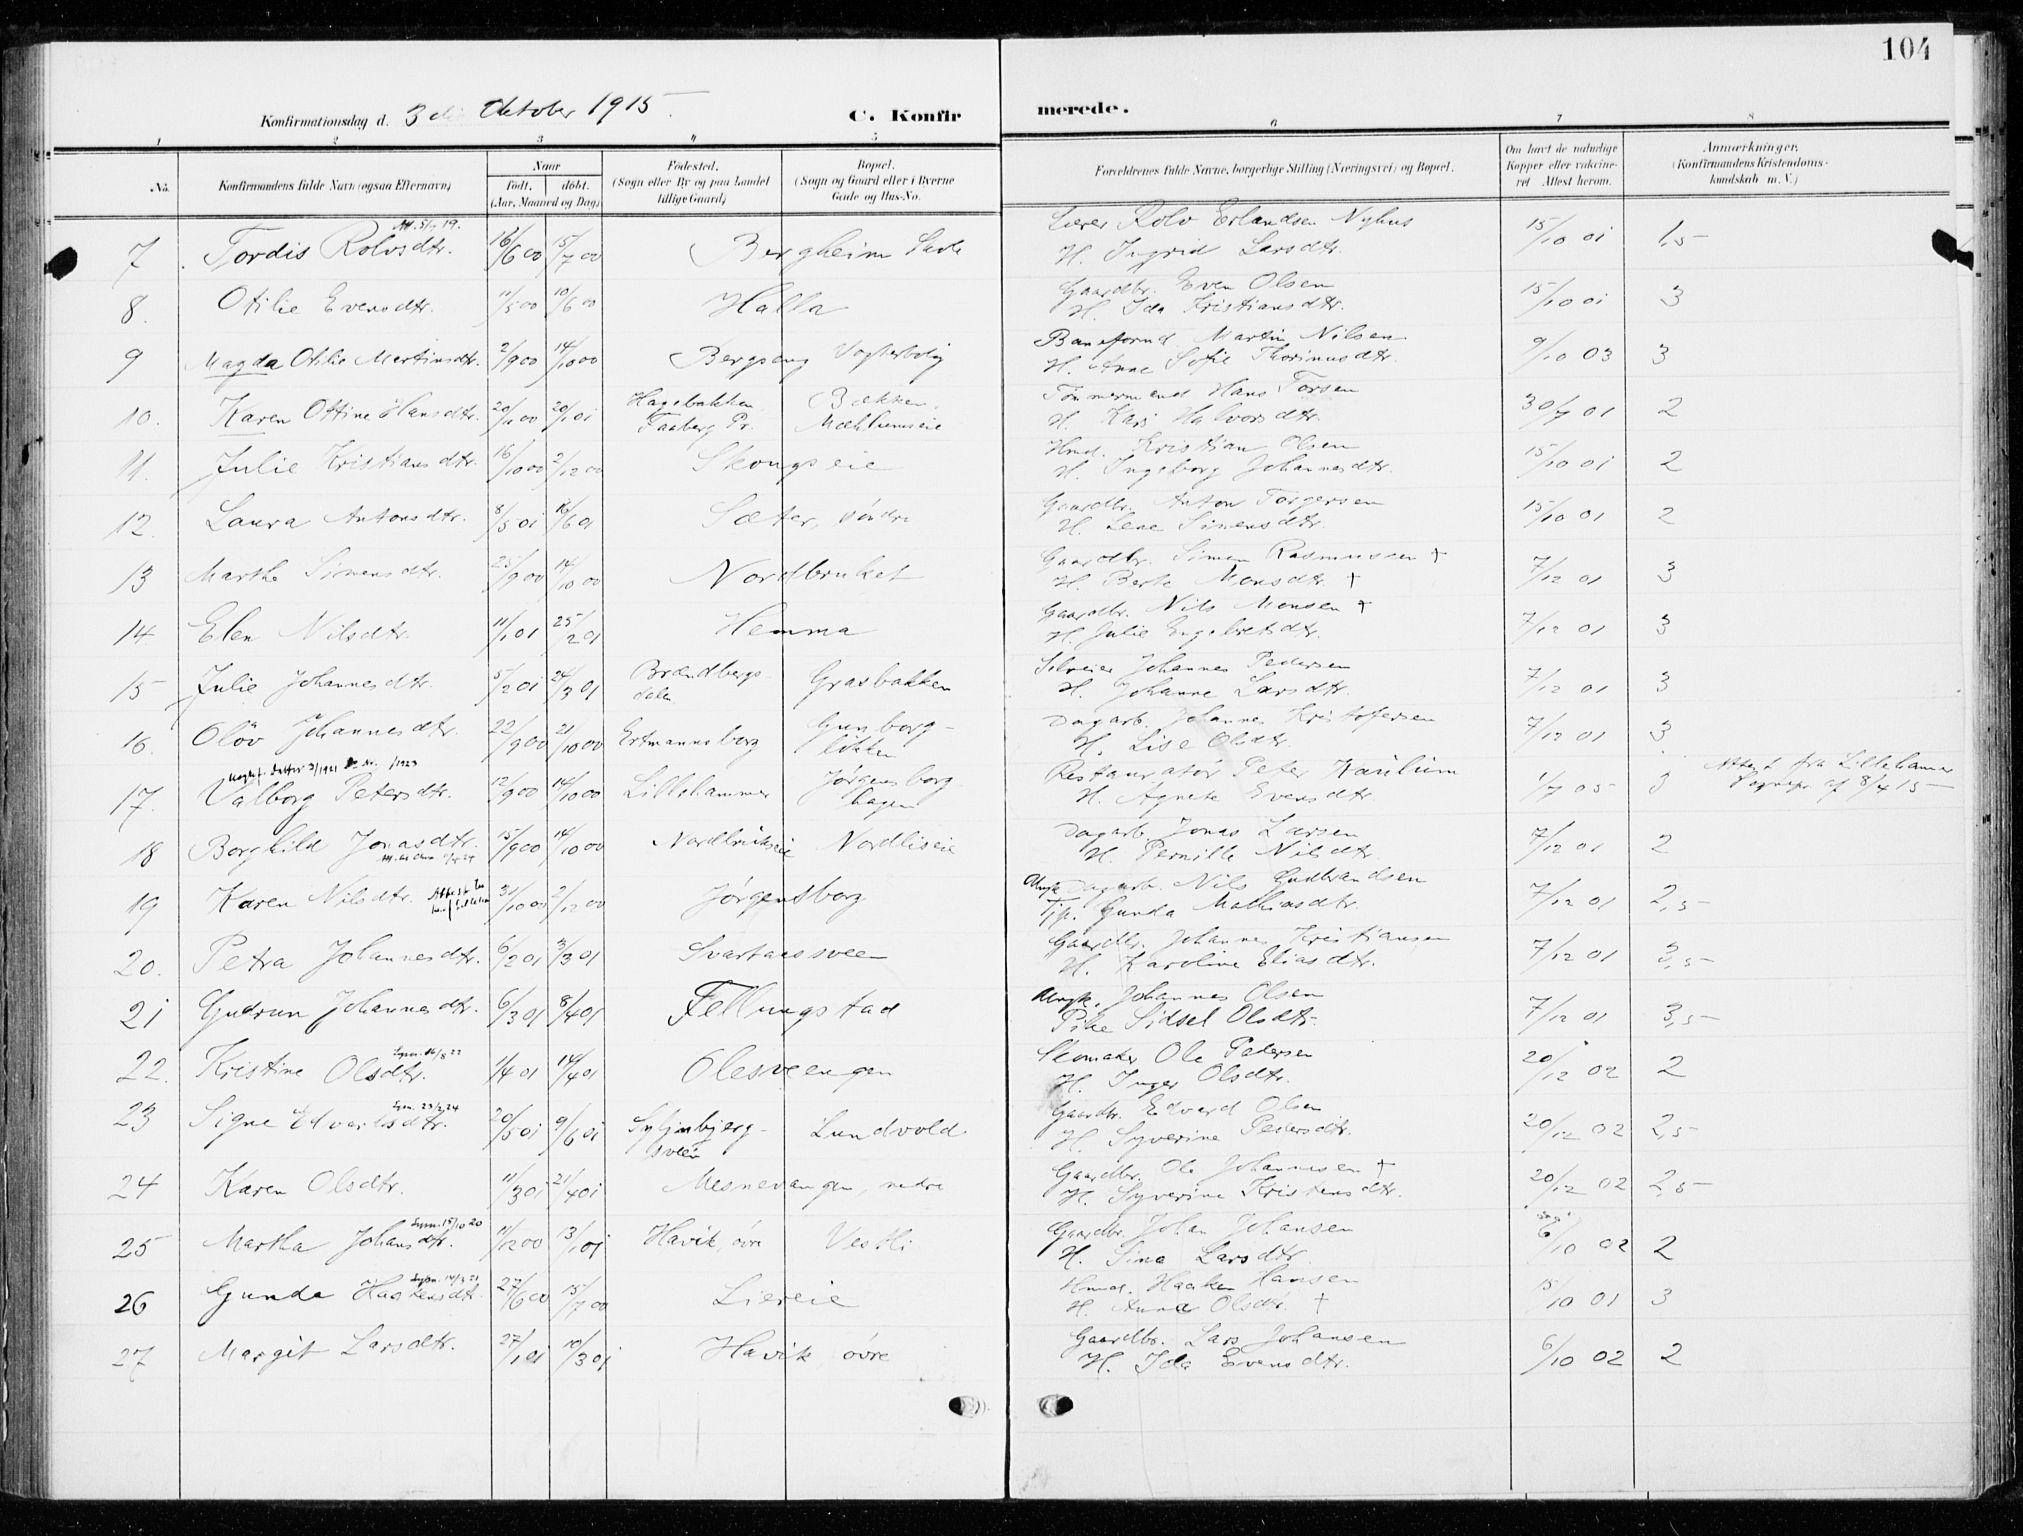 104
Konfirmationsdag d. 3 Oktober 1915
C. Konfirmerede.
1 2 3 4 5 6 7 8
No.
Konfirmandens fulde Navn (ogsaa Efternavn)
Naar
født. døbt.
(Aar, Maaned og Dag)
Fødested.
(Sogn eller By og paa Landet
tillige Gaard)
Bopæl.
(Sogn og Gaard eller i Byerne
Gade og Hus-No.
Forældrenes fulde Navne, borgerlige Stilling (Næringsvei) og Bopæl.
Om havt de naturlige
Kopper eller vakcine-
ret Attest herom.
Anmærkninger,
(Konfirmandens Kristendoms-
kundskab m. V.)
7 Tordis Rolvsdtr. 16/6 00 15/7 00 Bergheim Lærer Rolv Erlandsen Nyhus 15/10 01 1,5
H. Ingrid Larsdtr.
8. Otilie Evensdtr. 11/5 00 10/6 00 Halla Gaardbr. Even Olsen 15/10 01 3
H. Ida Kristiansdtr.
9 Magda Otilie Martinsdtr. 2/9 00 14/10 00 Bergseng Vogterbolig Baneformd. Martin Nilsen 9/10 03 3
H. Anne Sofie Thorinusdtr.
10. Karen Ottine Hansdtr. 20/1 00 20/1 01 Hagebakken Faaberg Pr. Bækken, Mæhlumseie Tømmermand Hans Torsen 30/7 01 2
H. Kari Halvorsdtr.
11. Julie Kristiansdtr. 16/10 00 2/12 00 Skougseie Hmd. Kristian Olsen 15/10 01 2
H. Ingeborg Johannesdtr.
12. Laura Antonsdtr. 8/5 01 16/6 01 Sæter, søndre Gaardbr. Anton Torgersen 15/10 01 2
H. Lene Simensdtr.
13 Marthe Simensdtr. 25/9 00 14/10 00 Nordbruket Gaardbr. Simen Rasmussen † 7/12 01 3
H. Berte Monsdtr. †
14. Elen Nilsdtr. 11/1 01 25/2 01 Hemma Gaardbr. Nils Monsen † 7/12 01 3
H. Julie Engebretsdtr.
15 Julie Johannesdtr. 5/2 01 24/3 01 Brændbergsdalen Grasbakken Selveier Johannes Pedersen 7/12 01 3
H. Johanne Larsdtr.
16. Oløv Johannesdtr. 22/9 00 21/10 00 Ertmannsborg Gunborg-løkken Dagarb. Johannes Kristofersen 7/12 01 3
H. Lise Olsdtr.
17. Valborg Petersdtr. 12/9 00 14/10 00 Lillehammer Jørgensborg hagen Restauratør Peter Kaulum 1/7 05 3 Attest fra Lillehammer Sognepr. af 8/4 15
H. Agnete Evensdtr.
18 Borghild Jonasdtr. 15/9 00 14/10 00 Nordlirudseie Nordliseie Dagarb. Jonas Larsen 7/12 01 2
H. Pernille Nilsdtr.
19 Karen Nilsdtr. 31/10 00 2/12 00 Jørgensborg Ungk. Dagarb. Nils Gudbrandsen 7/12 01 2,5
Tjp. Gunda Mathiasdtr.
20. Petra Johannesdtr. 6/2 01 3/3 01 Svartaassveen Gaardbr. Johannes Kristiansen 7/12 01 3,5
H. Karoline Eliasdtr.
21 Gudrun Johannesdtr. 6/3 01 8/4 01 Fellungstad Ungk. Johannes Olsen 7/12 01 3,5
Pike Sidsel Olsdtr.
22. Kristine Olsdtr. 1/4 01 14/4 01 Olesveengen Skomaker Ole Pedersen 20/12 02 2
H. Inger Olsdtr.
23 Signe Edvardsdtr. 20/5 01 9/6 01 Syljubjerg-sveen Lundvold Gaardbr. Edvard Olsen 20/12 02 2,5
H. Syverine Pedersdtr.
24 Karen Olsdtr. 11/3 01 21/4 01 Mesnevangen, nedre Gaardbr. Ole Johannesen † 20/12 02 2,5
H. Syverine Kristensdtr.
25 Martha Johansdtr. 11/12 00 13/1 01 Havik, øvre Vestli Gaardbr. Johan Johansen 6/10 02 2
H. Sina Larsdtr.
26 Gunda Haakensdtr. 27/6 00 15/7 00 Liereie Hmd. Haaken Hansen 15/10 01 3
H. Anna Olsdtr. †
27 Margit Larsdtr. 27/1 01 10/3 01 Havik øvre Gaardbr. Lars Johansen 6/10 02 2
H. Ida Evensdtr.